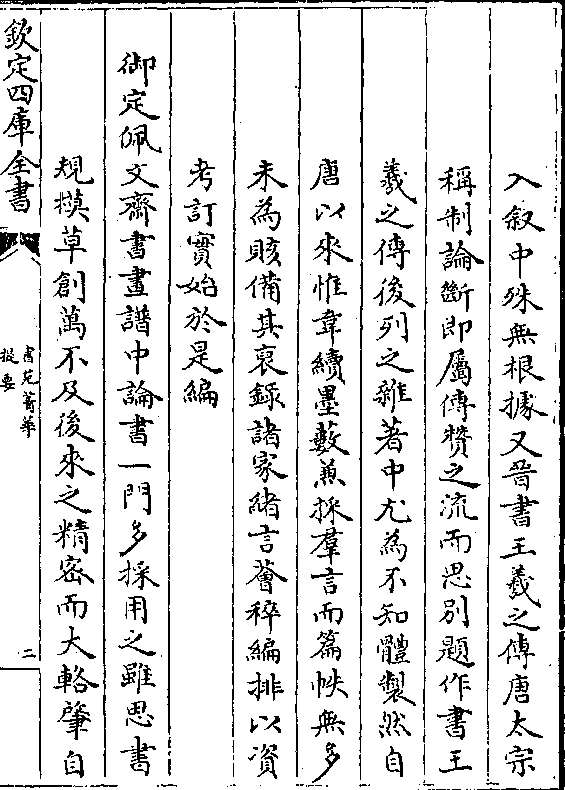 入叙中殊無根據又晉書王羲之傳唐太宗
稱制論斷即屬傳贊之流而思别題作書王
羲之傳後列之雜著中尤為不知體製然自
唐以來惟韋續墨藪兼採羣言而篇帙無多
未為賅備其裒錄諸家緒言薈稡編排以資
考訂實始於是編
御定佩文齋書畫譜中論書一門多採用之雖思書
規模草創萬不及後來之精密而大輅肇自
欽定四庫全書
書苑菁華
提要
二